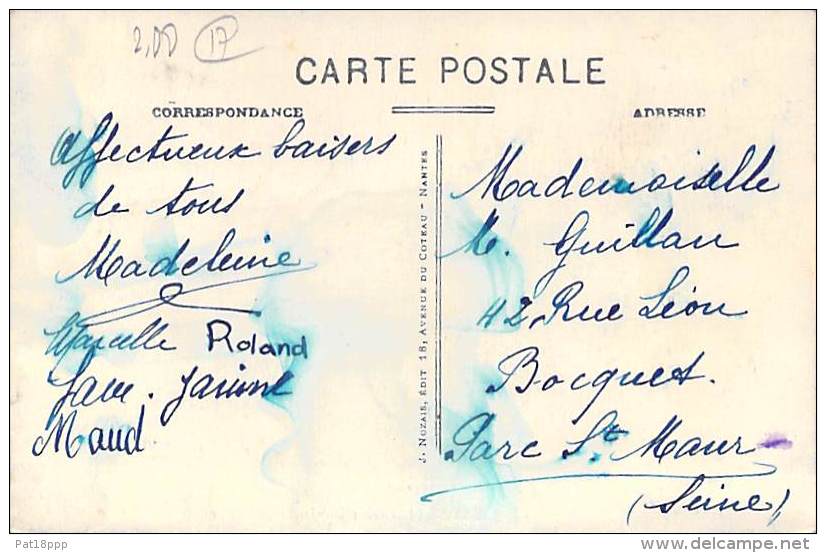 2,00 17
CARTE POSTALE
CORRESPONDANCE
ADRESSE
Affectueux baisers
de tous
Madeleine
Marcelle Roland
Janine
Maud.
J. Nozais, Édit 18, Avenue du Coteau - Nantes
Mademoiselle
M. Guillau
42, Rue Léon
Bocquet.
Parc St Maur
(Seine)
Pat18ppp
delcampe.net